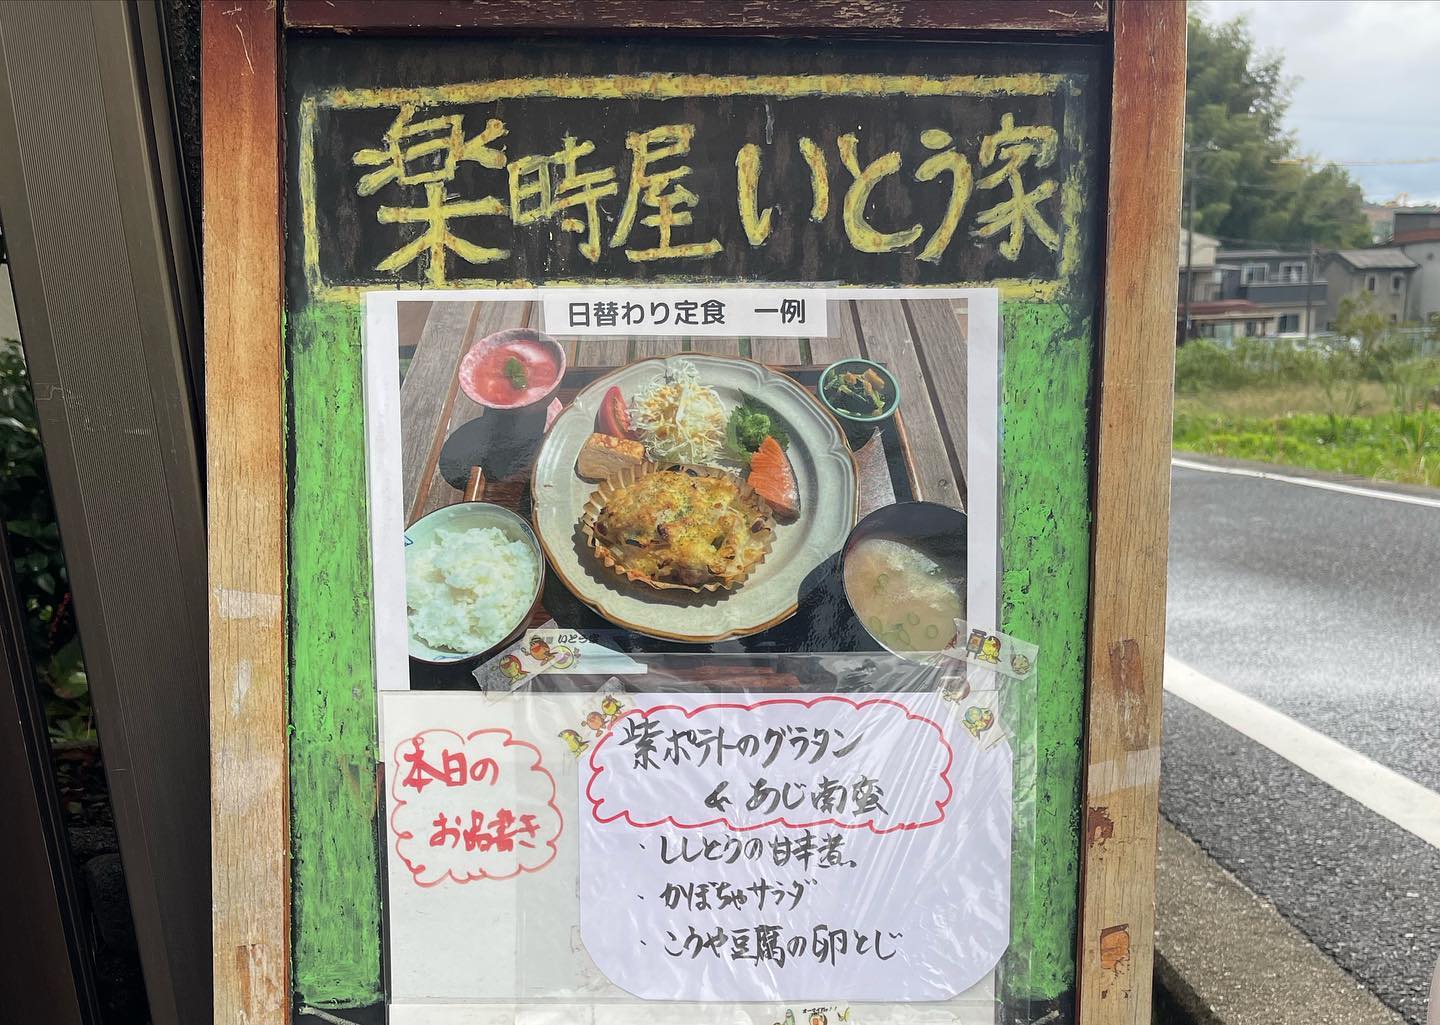 楽時屋 いとう家
日替わり定食 一例
いとう家
本日の
お品書き
紫ポテトのグラタン
& あじ南蛮
・ししとうの甘辛煮
・かぼちゃサラダ
・こうや豆腐の卵とじ